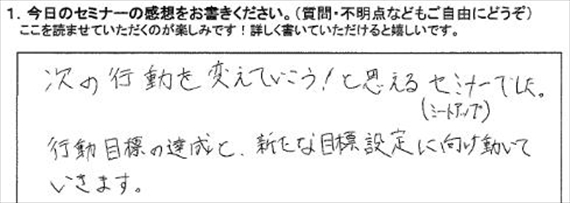 1. 今日のセミナーの感想をお書きください。（質問・不明点などもご自由にどうぞ）
ここを読ませていただくのが楽しみです！詳しく書いていただけると嬉しいです。
次の行動を変えていこう！と思えるセミナーでした。
（ミートアップ）
行動目標の達成と、新たな目標設定に向け動いて
いきます。